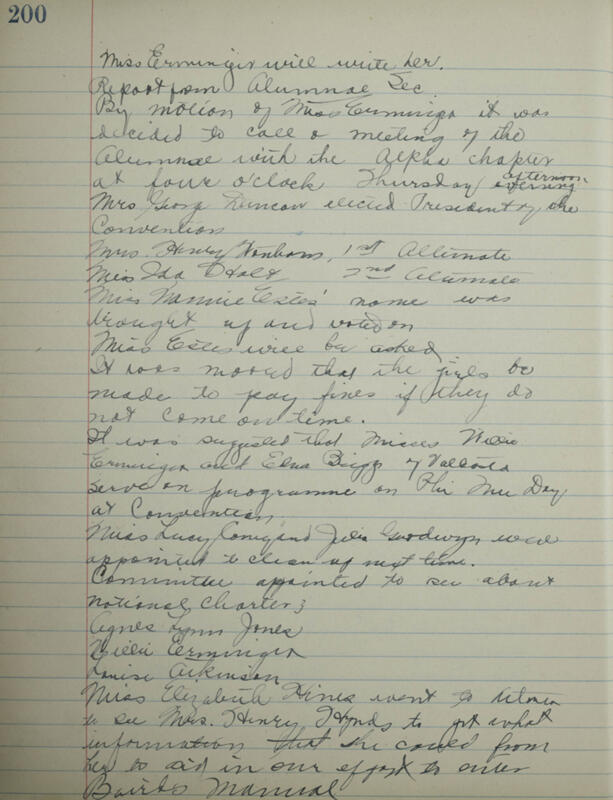 200
Miss Erminger will write her.
Report from Alumnae Sec.
By motion of Miss Erminger it was
decided to call a meeting of the
Alumnae with the Alpha chapter
at four o'clock Thursday evening afternoon
Mrs George Duncan elected President of the
Convention
Mrs. Henry Wonham, 1st Alternate
Miss Ida Holt 2nd Alternate
Miss Mamie Estes' name was
brought up and voted on
Miss Estes will be asked
It was moved that the girls be
made to pay fines if they do
not come on time.
It was suggested that Misses Willie
Erminger and Edna Briggs of Valdosta
serve on programme on Phi Mu Day
at Convention
Miss Lucy and Julia Goodwyn were
appointed to clean up next time.
Committee appointed to see about
national charter;
Agnes Lynn Jones
Willie Erminger
Louise Atkinson
Miss Elizabeth Hines went to
to see Mrs. Henry Hynds to get what
information that she could from
her to aid in our effort to enter
Baird's Manual